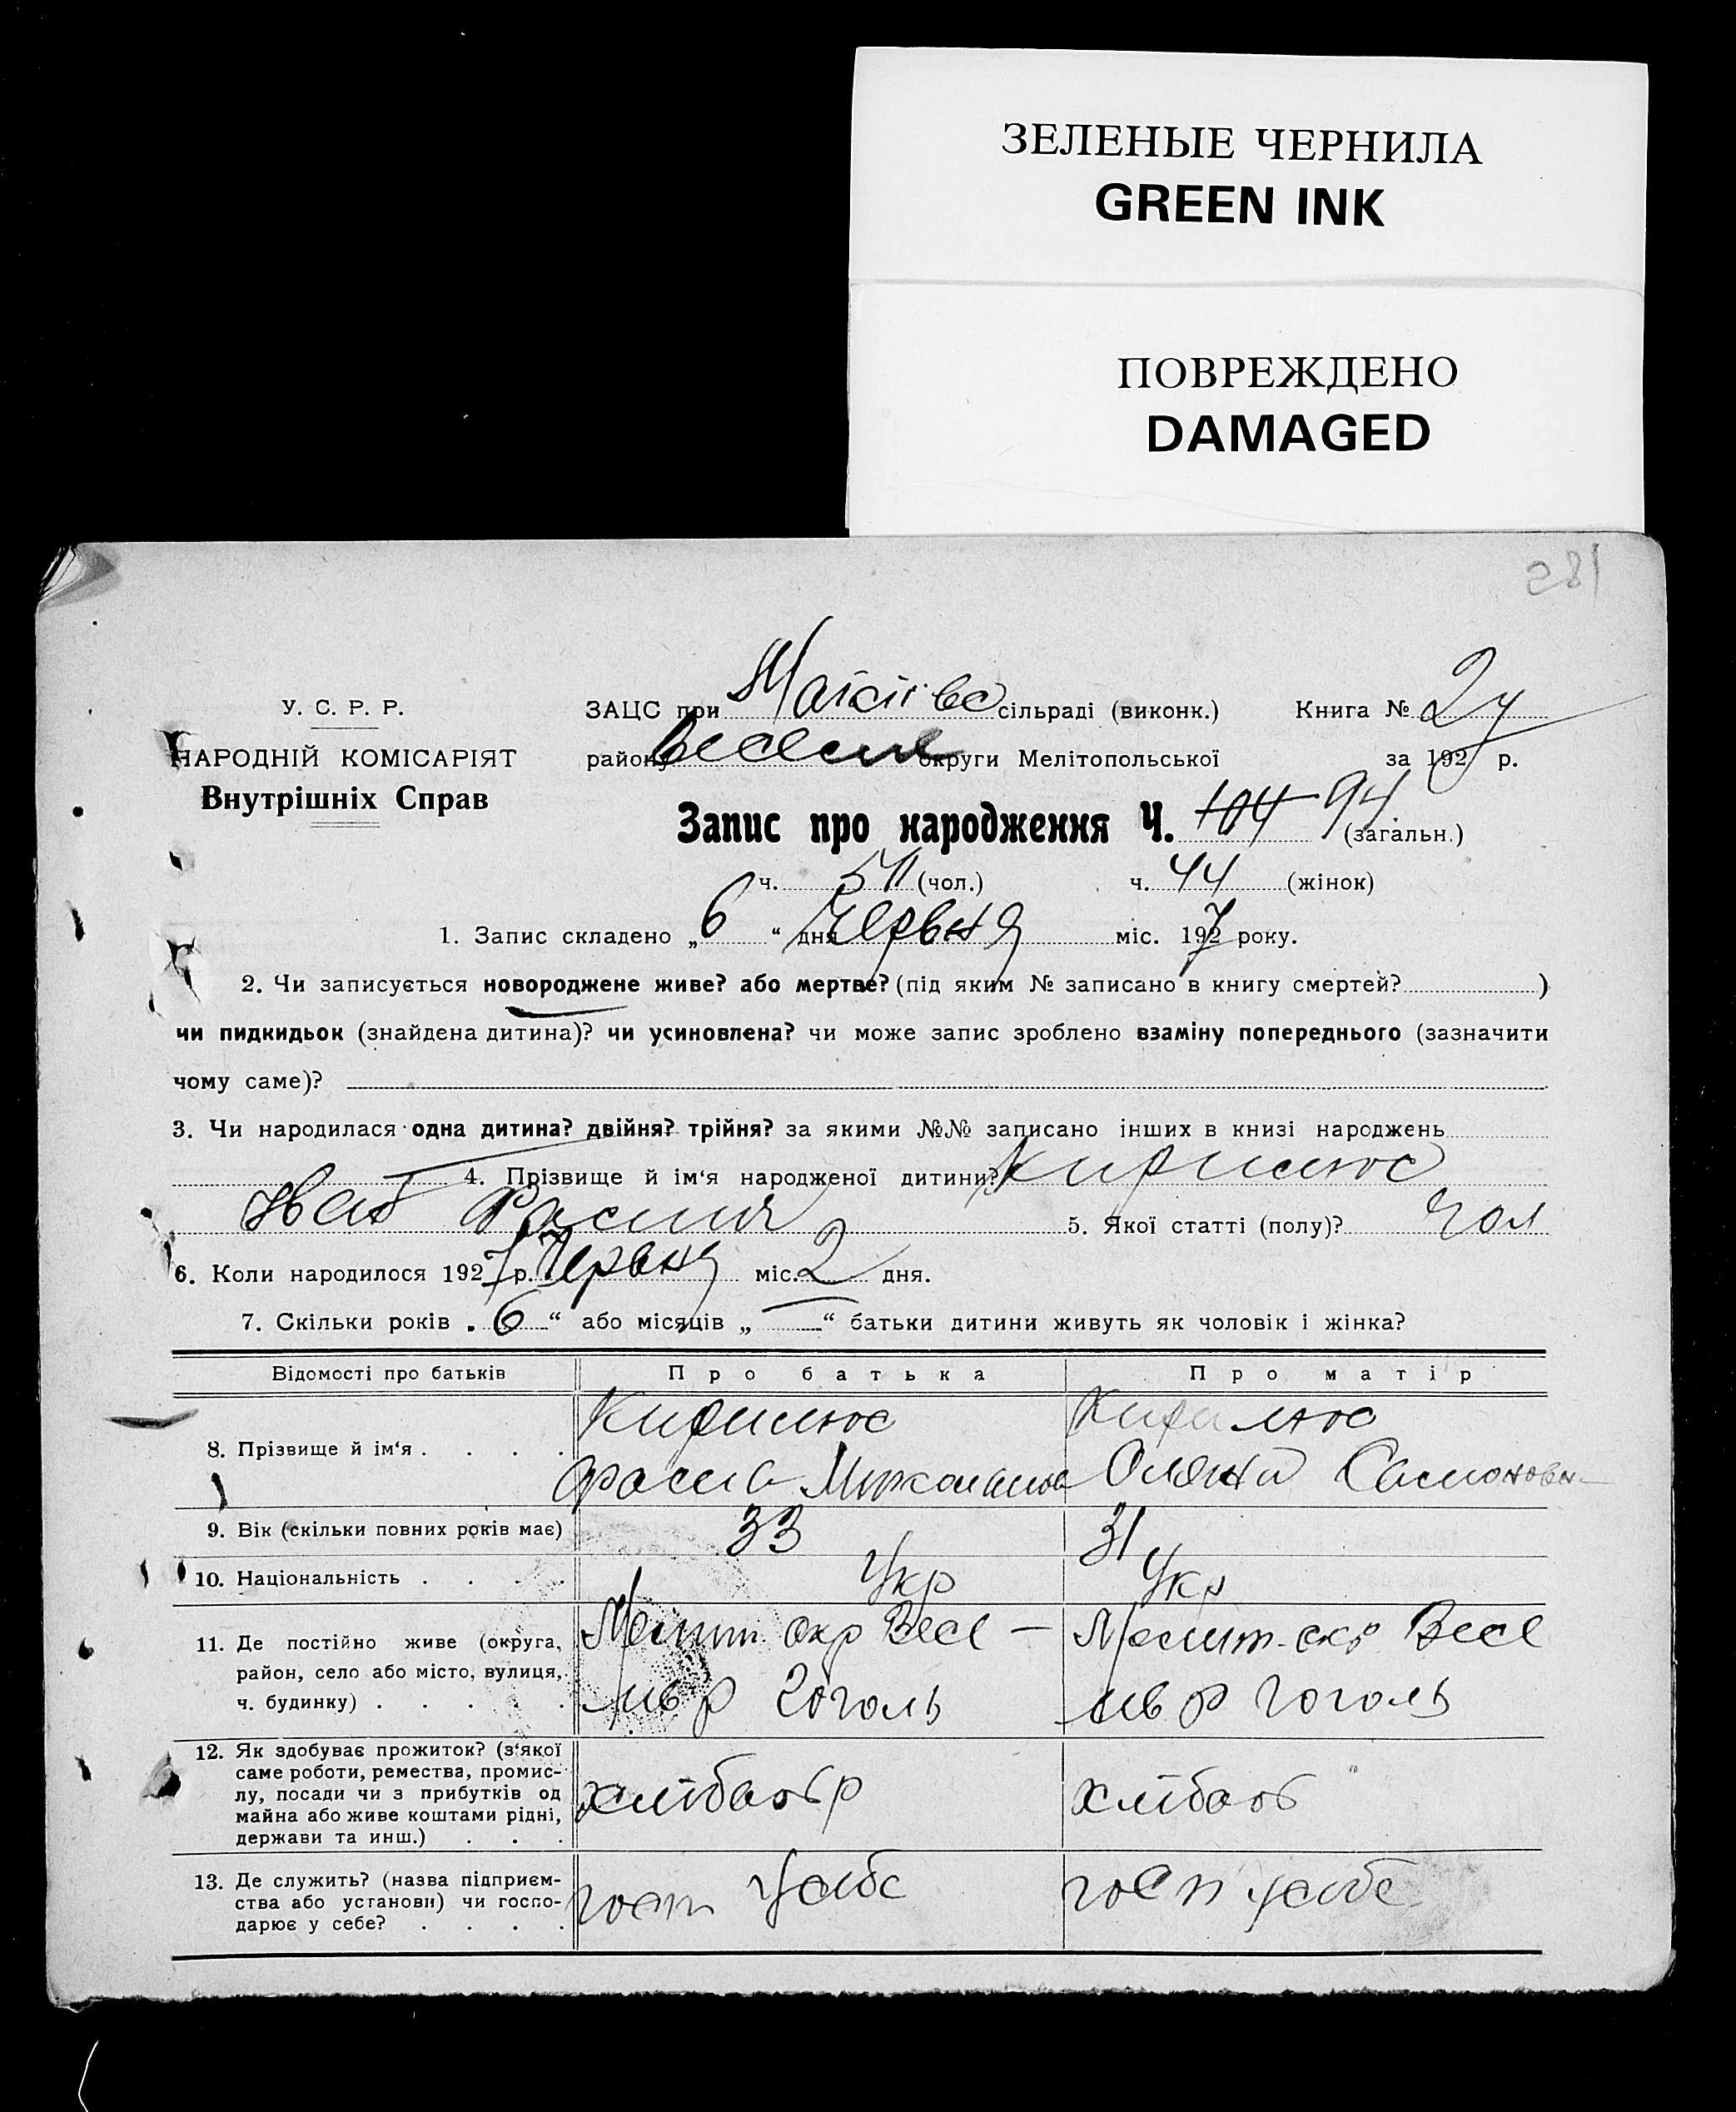 ЗЕЛЕНЫЕ ЧЕРНИЛА
GREEN INK
ПОВРЕЖДЕНО
DAMAGED
281
У. С. Р. Р.
ЗАЦС при сільраді (виконк.) Книга №
НАРОДНІЙ КОМІСАРІЯТ
району округи Мелітопольської за 1927 р.
Внутрішніх Справ
Запис про народження Ч. 104 94 (загальн.)
ч. (чол.) ч. 44 (жінок)
1. Запис складено „ 6 “ дня Червня міс. 1927 року.
2. Чи записується новороджене живе? або мертве? (під яким № записано в книгу смертей? )
чи пидкидьок (знайдена дитина)? чи усиновлена? чи може запис зроблено взаміну попереднього (зазначити
чому саме)?
3. Чи народилася одна дитина? двійня? трійня? за якими №№ записано інших в книзі народжень
4. Прізвище й ім‘я народженої дитини? Кирилюс
Іван 5. Якої статті (полу)? Чол
6. Коли народилося 1927 р. Червня міс. 2 дня.
7. Скільки років „ 6 “ або місяців „ — “ батьки дитини живуть як чоловік і жінка?
Відомості про батьків Про батька Про матір
Кирилюс Кирилюс
8. Прізвище й ім‘я . . . .
9. Вік (скільки повних років має) 33 31
10. Національність . . . . Укр Укр
11. Де постійно живе (округа, Мелит. окр Весе — Мелит. окр Весе
район, село або місто, вулиця,
ч. будинку) . . . . . р Гоголь р Гоголь
12. Як здобуває прожиток? (з‘якої
саме роботи, ремества, промис-
лу, посади чи з прибутків од хлібооб р хлібооб
майна або живе коштами рідні,
держави та инш.) . . .
13. Де служить? (назва підприєм-
ства або установи) чи госпо- госп у себе госп у себе
дарює у себе? . . . .